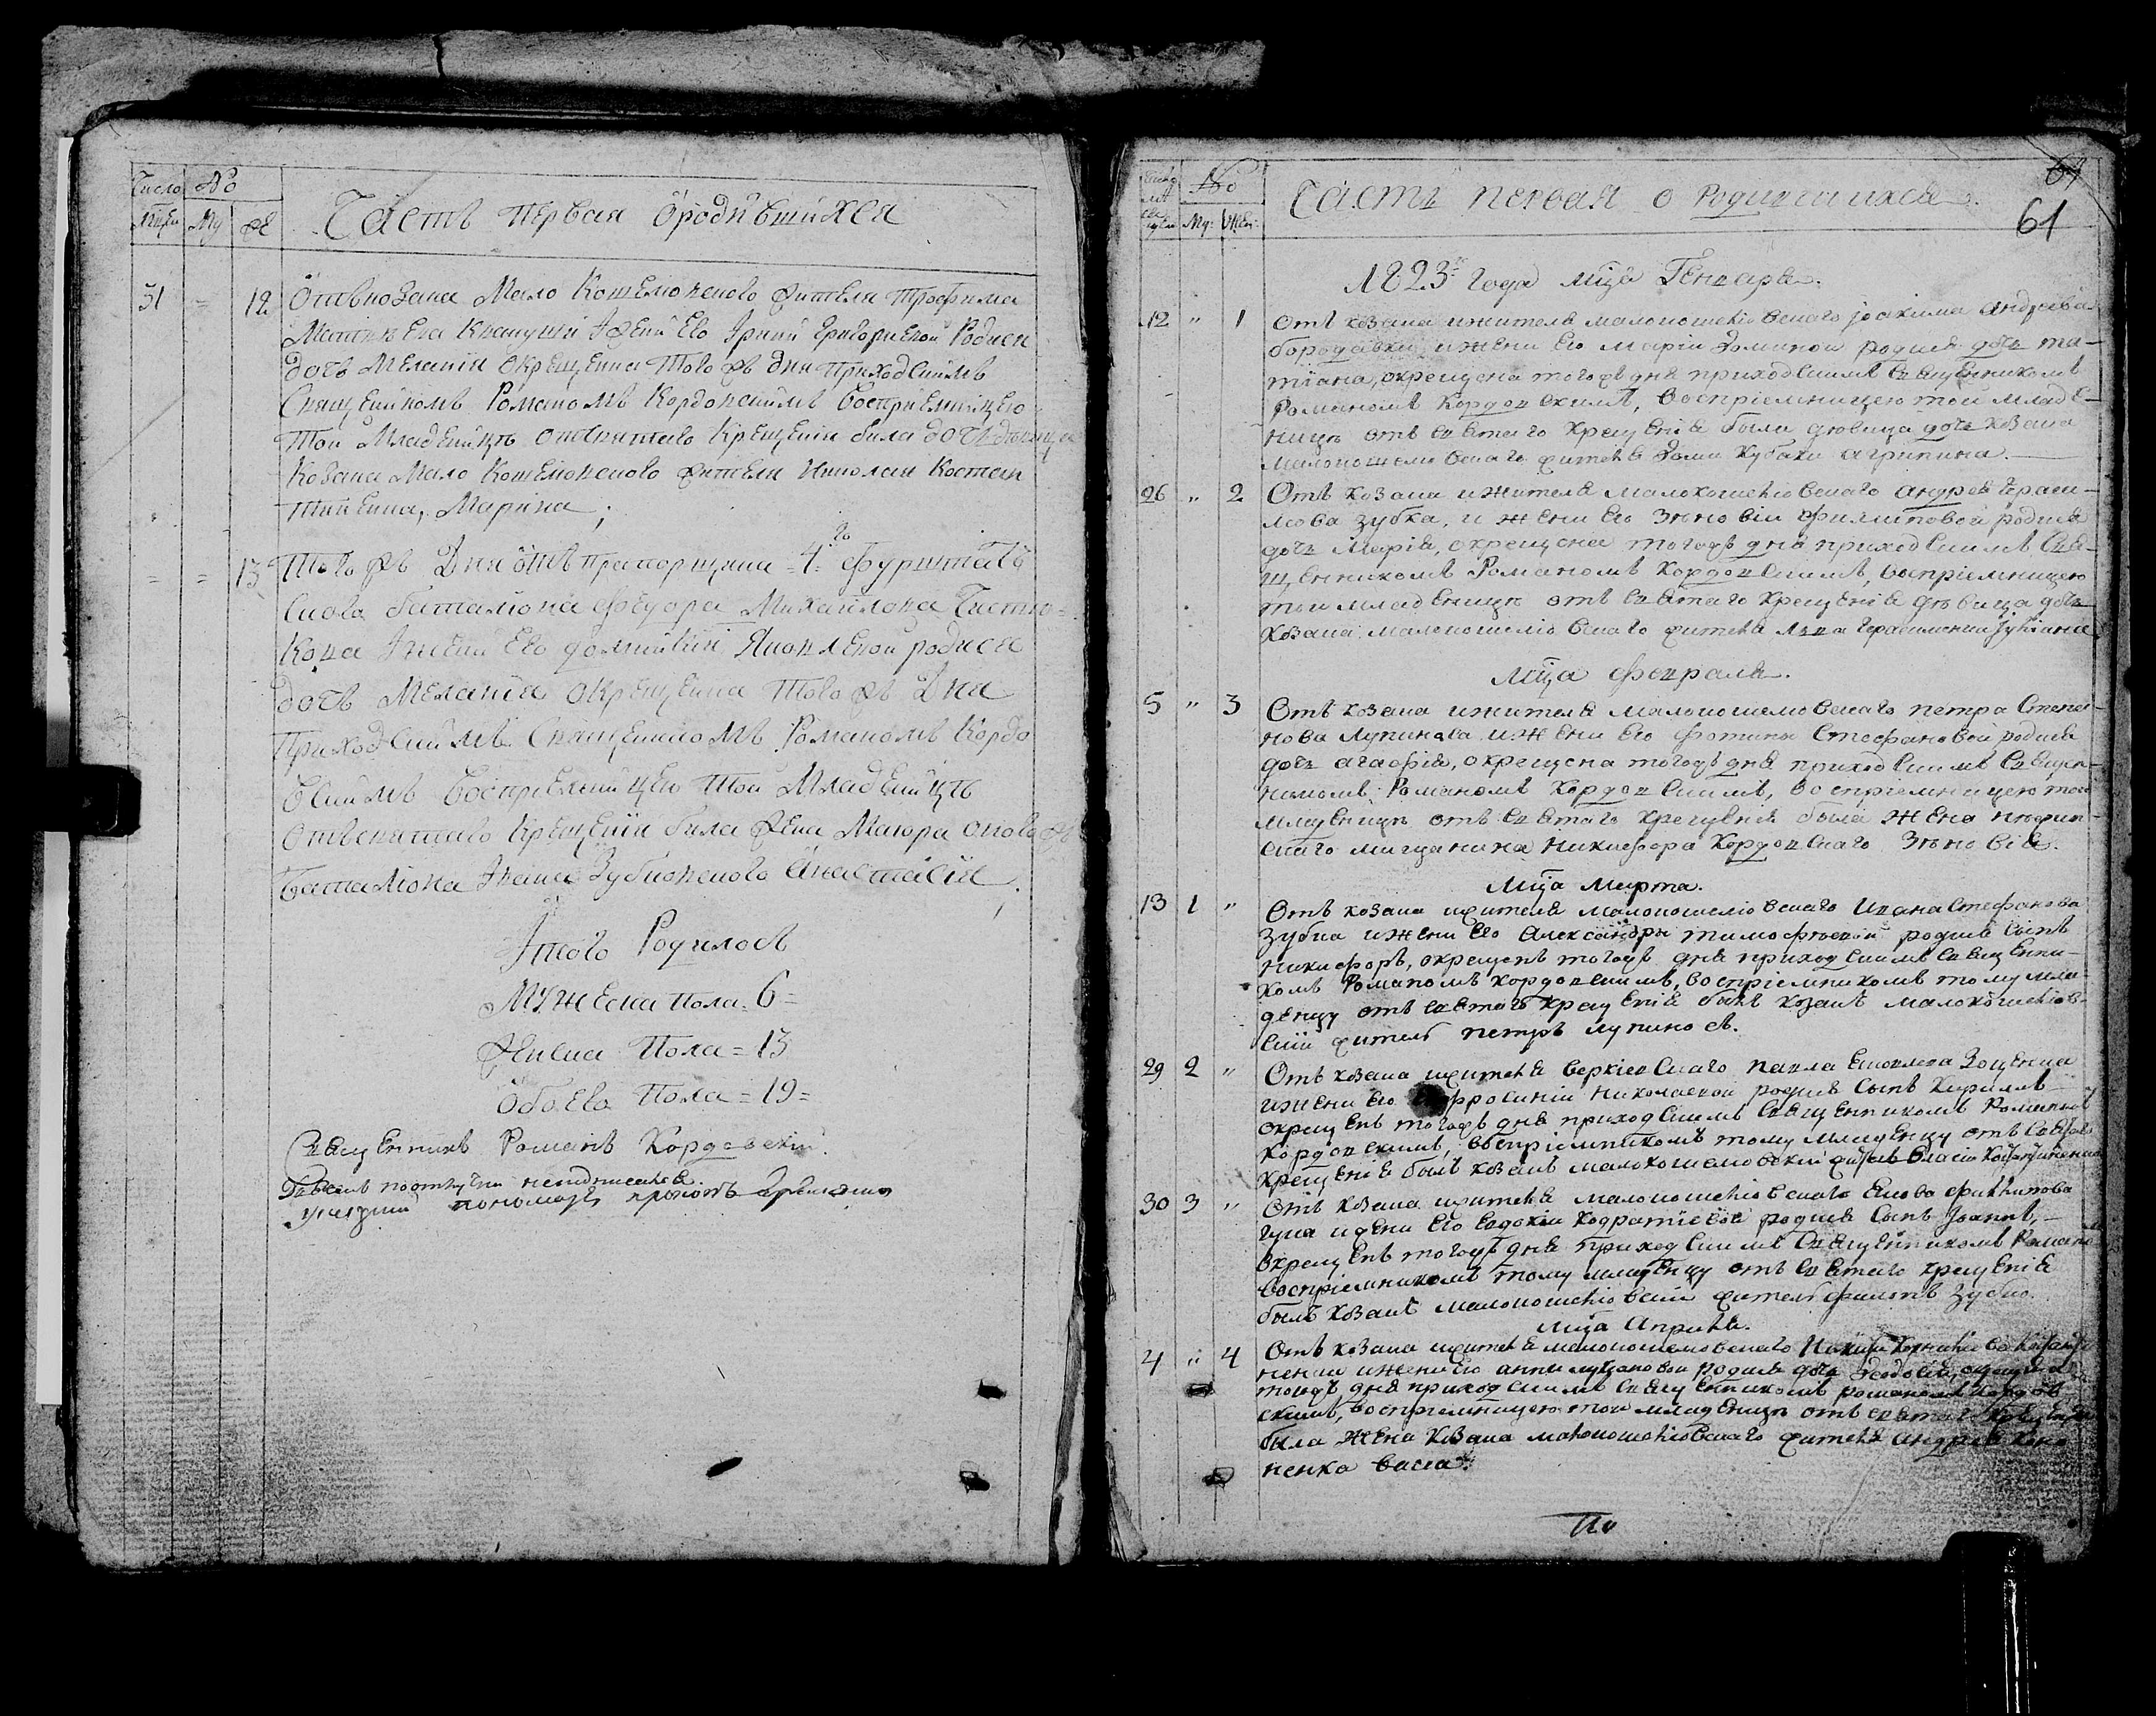 Число № Часть первая о родившихся
Мцеи Му Же
31 = 12 От козака Мало Кошелювского жителя Трофима
Матвеева Квашуни Жени Его Ірини Григориевой Родися
дочь Мелания окрещенна Того жъ дня Приходскимъ
Священникомъ Романомъ Кордовскимъ восприемницею
Той Младеницъ отсвятаго Крещения била дочь девица
Козака Мало Кошелювского жителя Николая Костен
Марина;
= = 13 Того жъ Дня отъ прапорщика =4= го Фурштатъ
скова баталиона Феодора Михайлова Чистяко=
Кова Ижени Его Домникии Яковлевой родися
дочь Мелания окрещенна Того жъ Дня
Приходскимъ Священникомъ Романомъ Кордо
вскимъ восприемницею Той Младеницъ
Отсвятаго Крещении била Жена Маиора оного жъ
Баталиона Ивана Зубковского Анастасия.
Итого Родилось
Мужеска Пола = 6 =
Женска Пола = 13
Обоего Пола = 19 =
Священникъ Романъ Кордовский.
пономарь
Число № Часть первая о Родившихся.
64
61
Му: Жен:
1823го года Мца Генваря.
12 " 1 Отъ козака ижителя малокошелювскаго Іоакима Андреева
бородавки ижени Его Марии Фоминои родися дочь та-
тиана, окрещена тогожъ дня приходскимъ священникомъ
Романомъ Кордовскимъ, восприемницею тои младе-
ницъ отъ святаго крещения была девица дочь козака
малокошелювскаго жителя Фоми Кубахи агрипина.
26 " 2 Отъ козака ижителя малокошелювскаго андрея гераси-
мова зубка, и жени Его Зѣновии филиповой родися
дочь Мария, окрещена тогожъ дня приходскимъ свя-
щенникомъ Романомъ Кордовскимъ, восприемницею
тои младеницъ отъ святаго крещения девица дочь
козака малокошелювскаго жителя
Мца февраля.
5 " 3 Отъ козака ижителя малокошелювскаго петра Степа-
нова Лупинова ижени Его фотини Стефановой родися
дочь агафия, окрещена тогожъ дня приходскимъ священ-
никомъ Романомъ Кордовскимъ, восприемницею тои
младеницъ отъ святаго крещения была жена нѣжин-
скаго мищанина никифора Кордовскаго Зѣновия.
Мца Марта.
13 1 " Отъ козака ижителя малокошелювскаго Ивана Стефанова
Зубка ижени Его Александри тимофѣевой родися Сынъ
никифоръ, окрещенъ тогожъ дня приходскимъ священни-
комъ Романомъ Кордовскимъ, восприемникомъ тому мла-
денцу отъ святаго крещения былъ козакъ малокошелюв-
ский житель петръ лупиносъ.
29 2 " Отъ козака ижителя веркиевскаго павла Зощенка
ижени Его Ефросинии николаевой родися Сынъ Кирилъ
окрещенъ тогожъ дня приходскимъ священникомъ Романомъ
Кордовскимъ, восприемникомъ тому младенцу отъ святаго
крещения былъ козакъ малокошелювский житель Власий
30 3 " Отъ козака ижителя малокошелювскаго Якова филипова
гука ижени Его Евдокии Кодратиевой родися Сынъ Іоаннъ,
окрещенъ тогожъ дня приходскимъ священникомъ Романо
восприемникомъ тому младенцу отъ святаго крещения
былъ козакъ малокошелювский житель филипъ зубко.
Мца Априля.
4 " 4 Отъ козака ижителя малокошелювскаго
ненка ижени Его анни лукяновой родися дочь Феодосия, окрещена
тогожъ дня приходскимъ священникомъ романомъ Кордов
скимъ, восприемницею тои младеницъ отъ святаго крещения
была жена козака малокошелювскаго жителя андрея Коно
ненка васса.
По